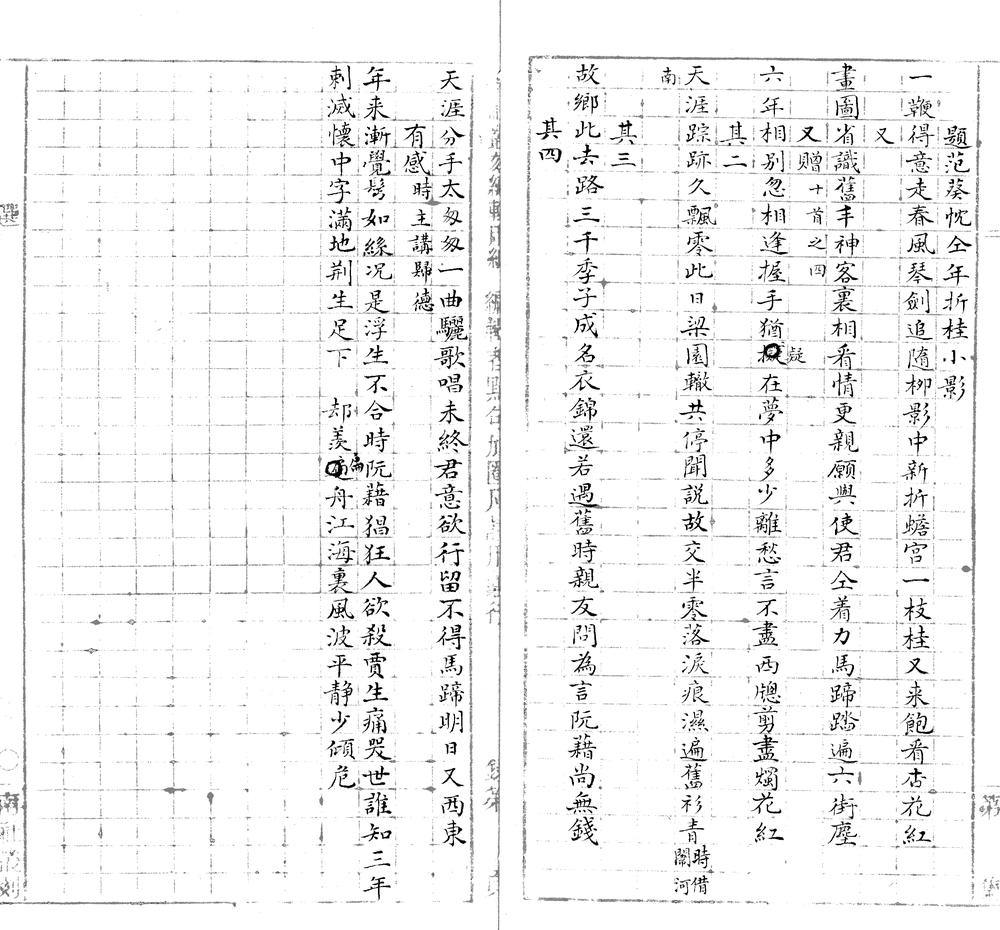 題范葵忱仝年折桂小影
一鞭得意走春風琴劍追隨柳影中新折蟾宮一枝桂又来飽看杏花紅
又
畫圖省識舊丰神客裏相看情更親願與使君仝着力馬蹄踏遍六街塵
又贈十首之四
六年相別忽相逢握手猶疑在夢中多少離愁言不盡西牕剪盡燭花紅
其二
天涯踪跡久飄零此日梁園轍共停聞説故交半零落淚痕濕遍舊衫青時借闈河南
其三
故鄉此去路三千季子成名衣錦還若遇舊時親友問為言阮藉尚無錢
其四
天涯分手太匆匆一曲驪歌唱未終君意欲行留不得馬蹄明日又西東
有感時主講歸德
年来漸覺鬂如絲况是浮生不合時阮藉猖狂人欲殺賈生痛哭世誰知三年
刺滅懷中字滿地荆生足下 却羨扁舟江海裏風波平静少傾危